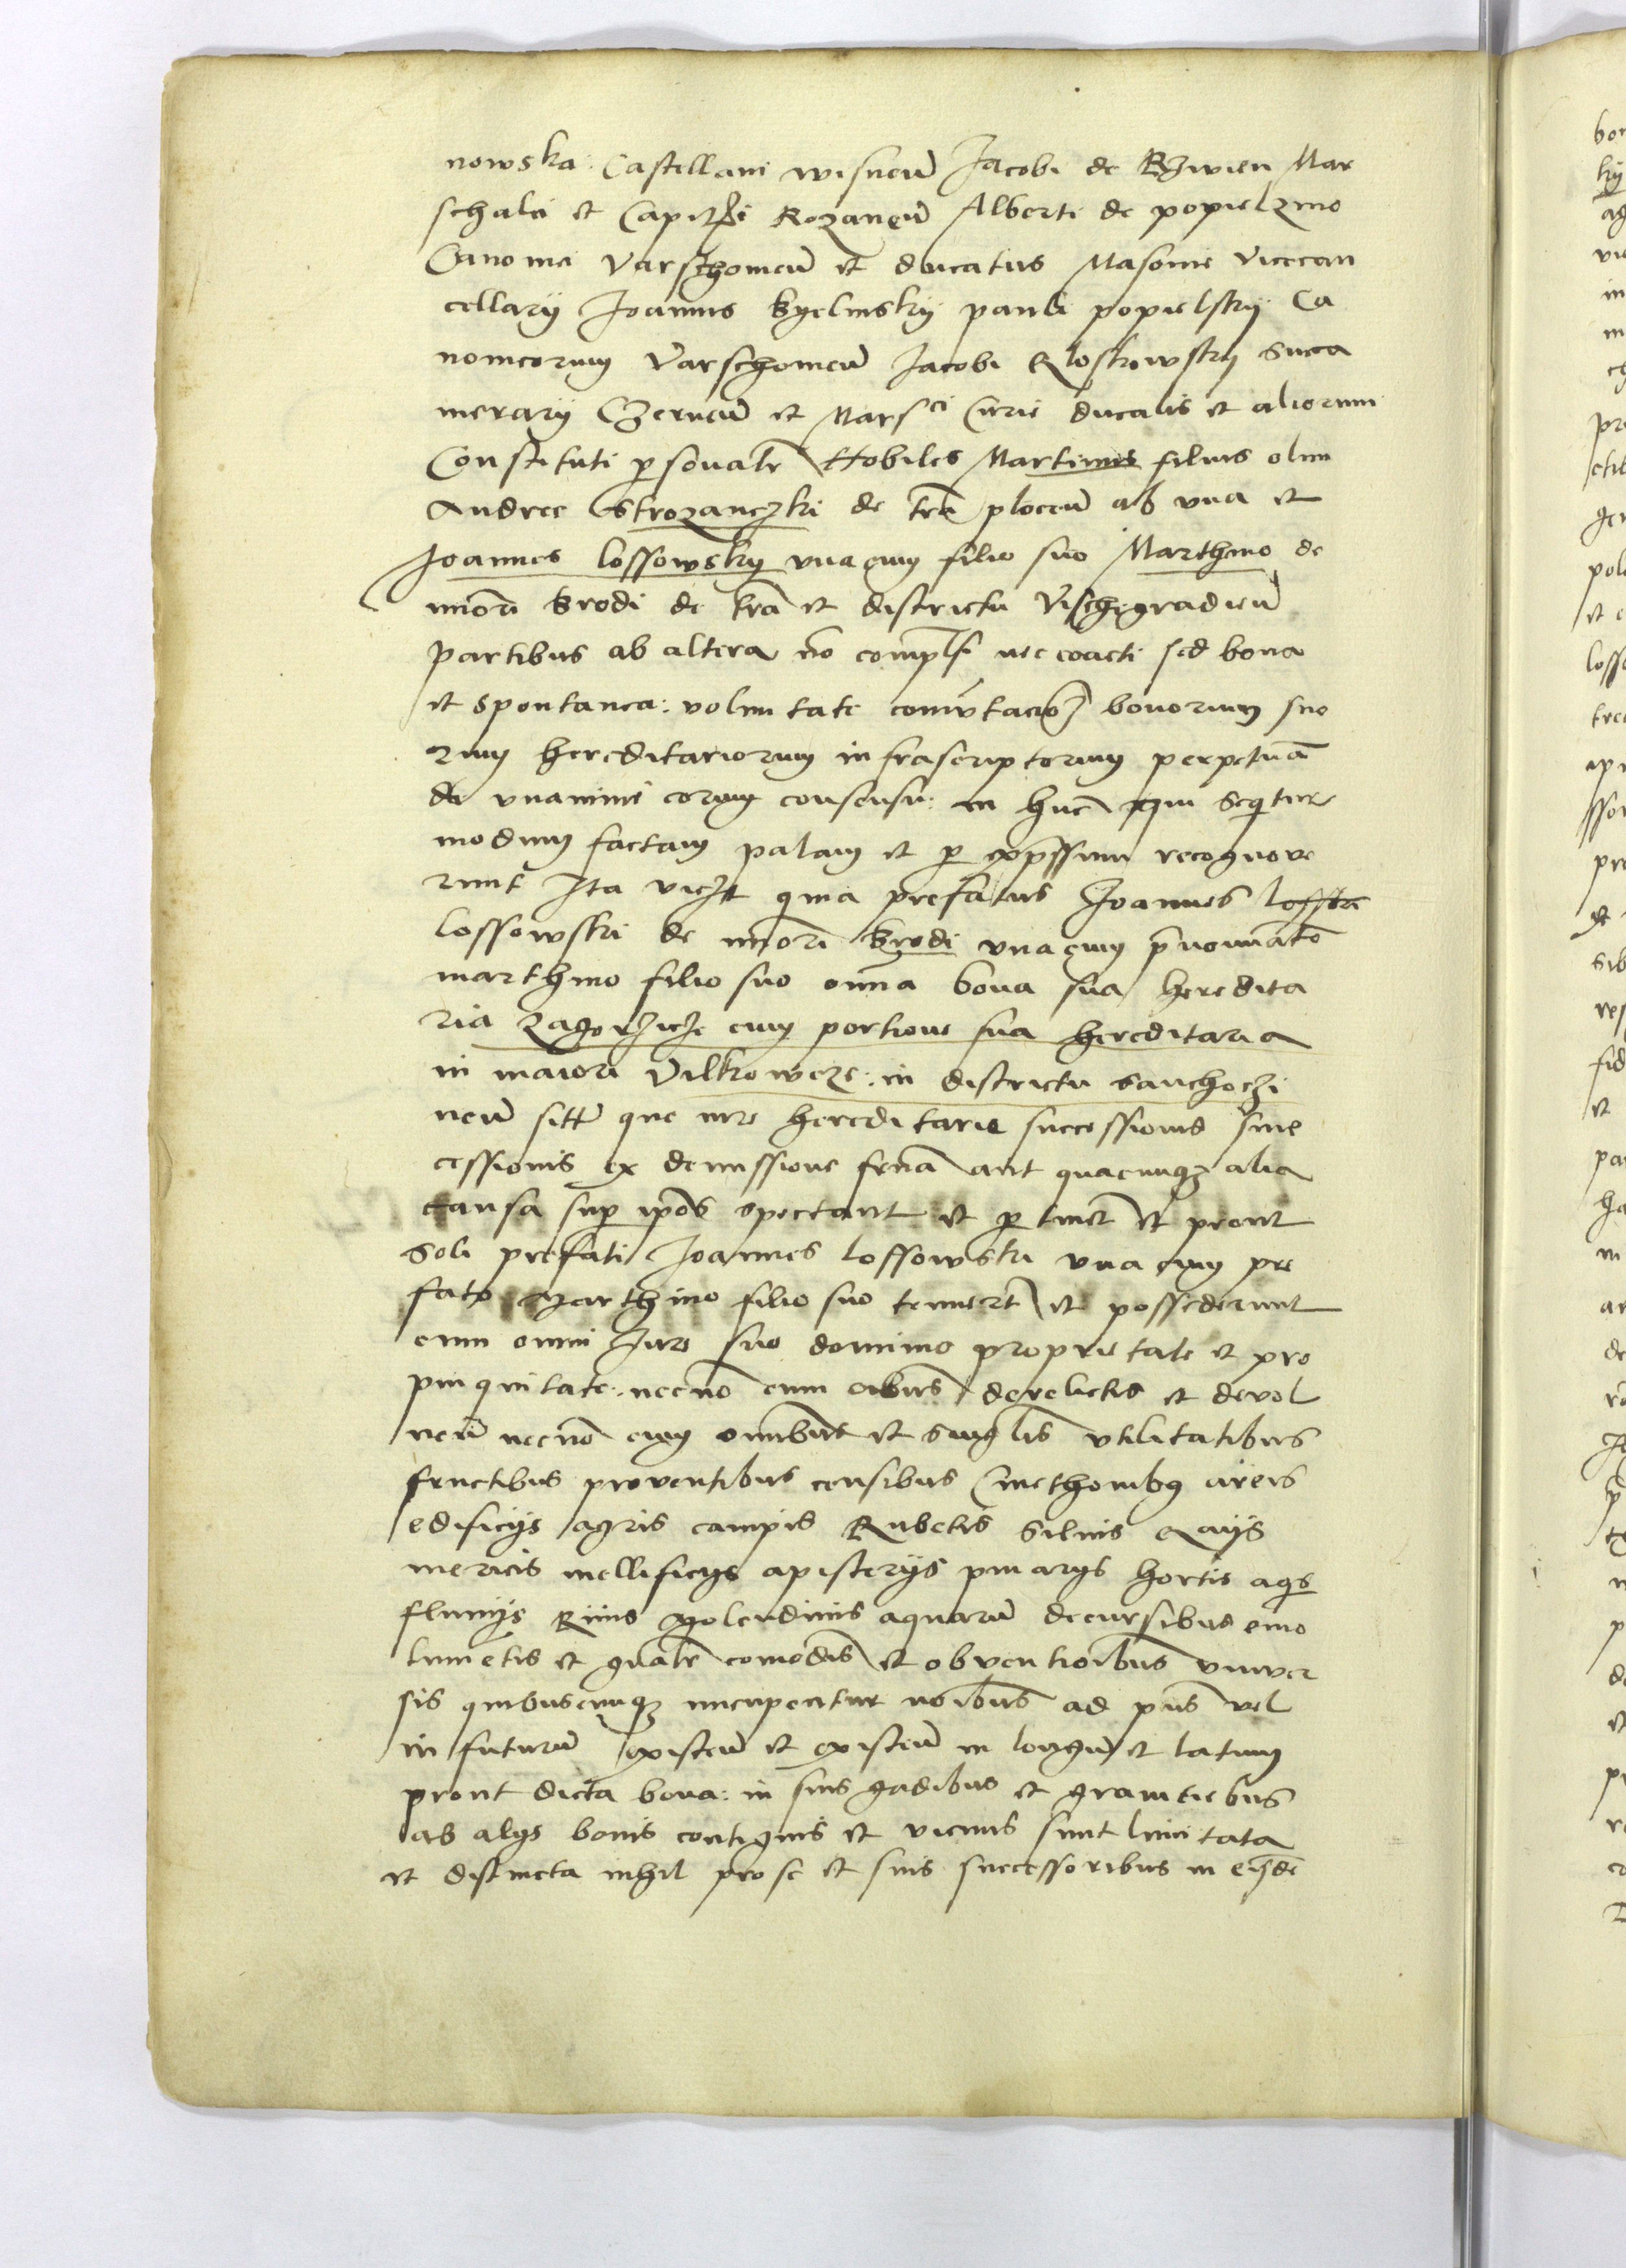 nowska Castellani wisneñ Jacobi de Rziwien Mar
schalci et Capitᷓi Rozaneñ Alberti de popielzino
Canonici Varschowieñ et ducatus Masovie vicecan
cellarij Joannis Byelinskij pauli popielskij Ca
nonicorum Varschowieñ Jacobi Kloskowskij Succa
merarij Czerneñ et Marsci Curie ducalis et aliorum
Constituti personalr̃ Nobiles Martinus filius olim
Andree Strozanczki de tra ploceñ ab vna et
Joannes lossowskij vna cum filio suo Marthino de
minori Brodi de tra et districtu Vischegradieñ
partibus ab altera nõ compulsi nec coacti sed bona
et spontanea: voluntate comutacioez bonorum suo
rum hereditariorum infrascriptorum perpetuã
de vnanimi eorum consensu: in hunc qui sequitur
modum factam palam et per expressum recognove
runt Ita viczt quia prefatus Joannes lossow
lossowski de minori Brodi vna cum prenominato
marthino filio suo omnia bona sua heredita
ria Zagorzicze cum portione sua hereditaria
in maiori Vilkoweze: in districtu sanchoczi
neñ sitt que iure hereditarie successionis sive
cessionis ex demissione frena aut quacunqz alia
causa super ipos spectant et pertinet et prout
soli prefati Joannes lossowski vna cum pre
fato Marthino filio suo tenuert et possederunt
cum omni Jure suo dominio proprietate et pro
pinquitate: necno cum oibus derelictis et devol
neñ necno cum omnibus et singulis vtilitatibus
fructibus proventibus censibus Cmethonibus areis
edificijs agris campis Rubetis silvis Gaijs
mericis mellificijs apisterijs pinarijs hortis aqis
fluvijs Rivis Molendinis aquarum decursibus emo
lumetis et gnalr̃ comodis et obventioibus vniver
sis quibuscunqz nuncupentur noibus ad pns vel
in futurum existeñ et existeñ in longum et latum
prout dicta bona: in suis gadibus et granitiebus
ab alijs bonis contiguis et vicinis sunt limitata
et distincta nihil pro se et suis successoribus in eisde